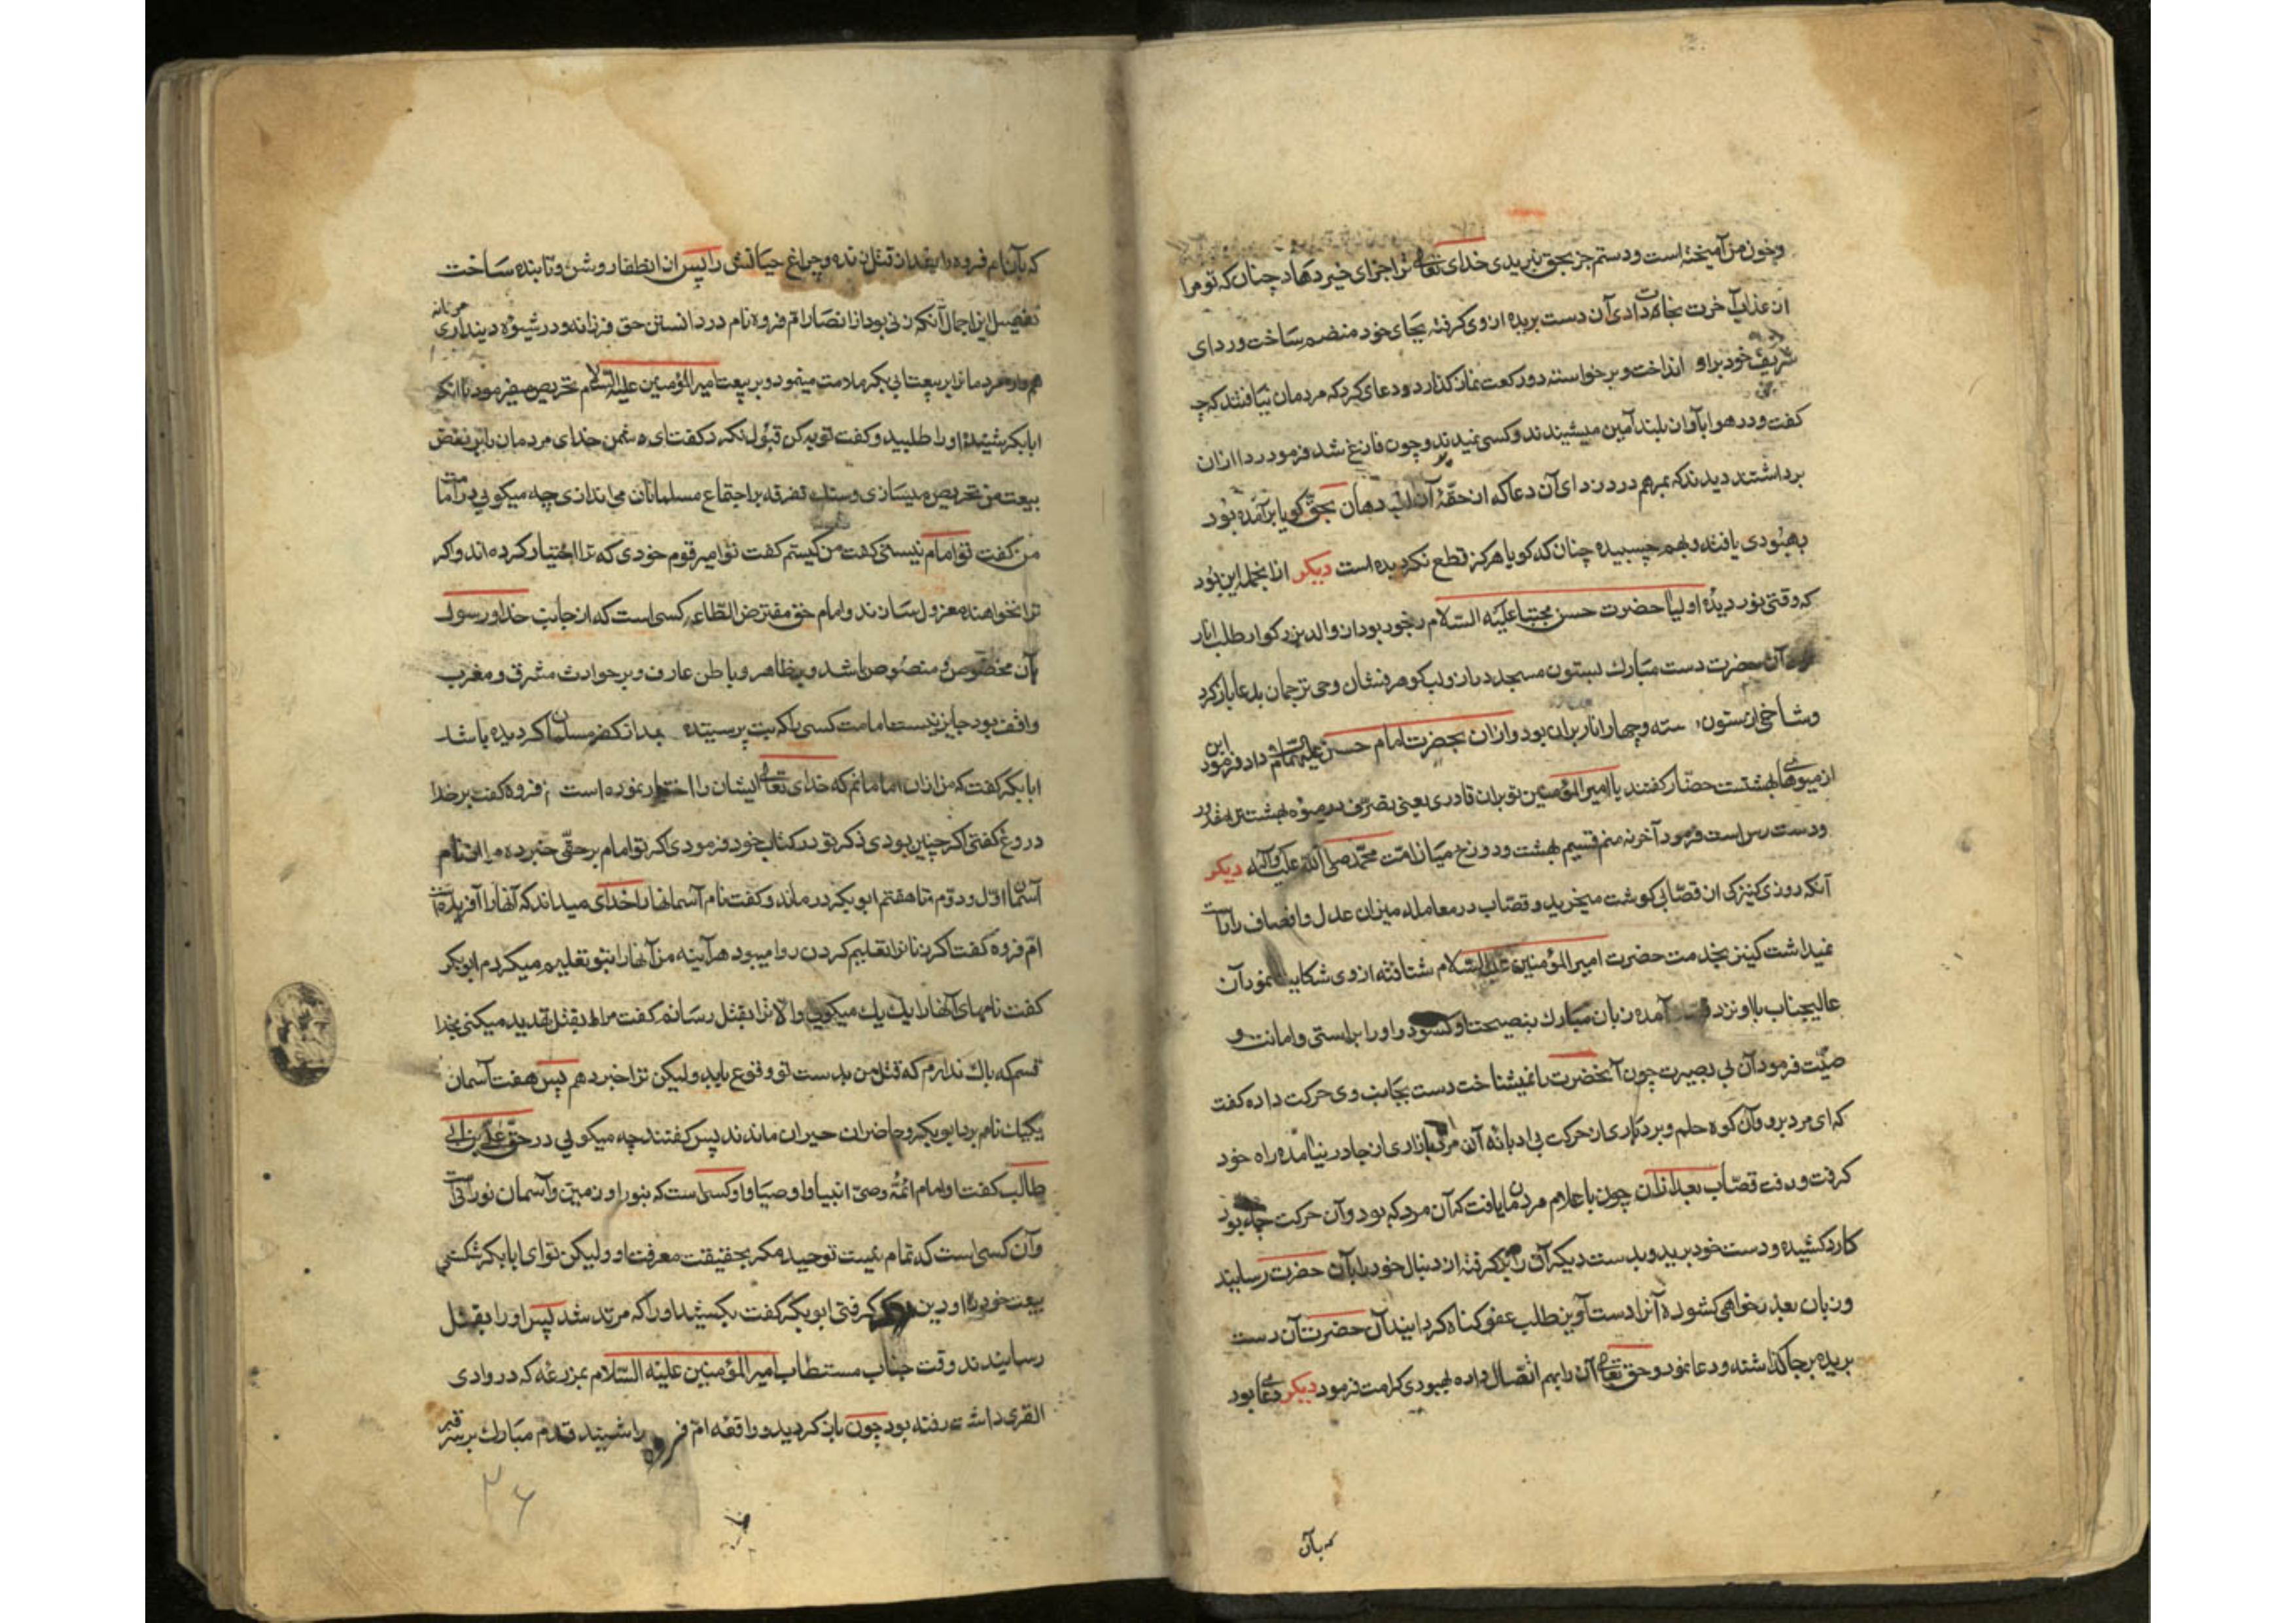 وخون من آمیخته است ودستم جز بحق نبریدی خدای تعالی ترا جزای خیر دهاد چنان که تو مرا
از عذاب آخرت نجات دادی آن دست بریده از وی کرفته بجای خود منضم ساخت و ردای
شریف خود بر او انداخت و برخواسته دو رکعت نماز کذارد و دعای کرد که مردمان نیافتند که چه
کفت و در هوا بآواز بلند آمین میشنیدند و کسی نمیدیدند و چون فارغ شد فرمود ردا از ان
برداشتند دیدند که بمرهم درد زدای آن دعا که از حقهٔ آن لب دهان بحق کویا برآمده بود
بهبودی یافته و بهم چسبیده چنان که کویا هرکز قطع نکردیده است دیکر از انجمله این بود
که وقتی نور دیدهٔ اولیا حضرت حسن مجتبا علیه السلام رنجور بود از والد بزرکوار طلب انار
آن حضرت دست مبارك بستون مسجد دراز و لب کوهرفشان وحی ترجمان بدعا باز کرد
وشاخی از ستون سته و چهار انار بران بود و ازان بحضرت امام حسن علیه السلام داد و فرمود این
از میوهای بهشتست حضار کفتند یا امیر المؤمنین تو بران قادری یعنی بتصرف در میوه بهشت ترا مقدور
ودست رس است فرمود آخر نه منم قسیم بهشت و دوزخ میان امت محمد صلی الله علیه وآله دیکر
آنکه روزی کنیزکی از قصابی کوشت میخرید و قصاب در معامله میزان عدل وانصاف راراست
نمیداشت کنیز بخدمت حضرت امیر المؤمنین علیه السلام شتافته از وی شکایت نمود آن
عالیجناب با او نزد آمده زبان مبارك بنصیحت او کشود و او را براستی و امانت و
صیت فرمود آن بی بصیرت چون آنحضرت را نمیشناخت دست بجانب وی حرکت داده کفت
که ای مرد برو و آن کوه حلم و بردباری از حرکت بی ادبانه آن مرد بازاری از جا در نیامده راه خود
کرفت و رفت قصاب بعد ازان چون باعلام مردمان یافت که آن مرد که بود و آن حرکت چه بود
کارد کشیده و دست خود برید و بدست دیکر آن را بر کرفته از دنبال خود را بآن حضرت رسانید
و زبان بعذر خواهی کشوده آنرا دست آویز طلب عفو کناه کردانید آن حضرت آن دست
بریده بر جا کذاشته و دعا نمود و حق تعالی آن را بهم اتصال داده بهبودی کرامت فرمود دیکر دعای بود
که بآن
که بآن ام فروه را بعد از قتل زنده و چراغ حیاتش را پس از انطفا روشن و تابنده ساخت
تفصیل این اجمال آنکه زنی بود از انصار ام فروه نام در دانستن حق فرزانه و در شیوهٔ دینداری مردانه
همواره مردمانرا بر بیعت ابی بکر ملامت مینمود و بر بیعت امیر المؤمنین علیه السلام تحریص میفرمود تا انکه
ابابکر شنیده او را طلبید و کفت توبه کن قبول نکرد کفت ای دشمن خدای مردمان را بر نقض
بیعت من تحریص میسازی و سنك تفرقه بر اجتماع مسلمانان می اندازی چه میکویی در امامت
من کفت تو امام نیستی کفت من کیستم کفت تو امیر قوم خودی که ترا اختیار کرده اند و اکر
ترا نخواهند معزول سازند و امام حق مفترض الطاعه کسی است که از جانب خدا و رسول
بآن مخصوص و منصوص باشد و بر ظاهر و باطن عارف و بر حوادث مشرق و مغرب
واقف بود جایز نیست امامت کسی را که بت پرسیتده بعد از کفر مسلمان کردیده باشد
ابابکر کفت که من ازان امامانم که خدای تعالی ایشان را اختیار نموده است ام فروه کفت بر خدا
دروغ کفتی اکر چنین بودی ذکر تو در کتاب خود فرمودی اکر تو امام برحقی خبر ده مرا از نام
آسمان اول و دوم تا هفتم ابوبکر در ماند و کفت نام آسمانها را خدای میداند که آنها را آفریده است
ام فروه کفت اکر زنانرا تعلیم کردن روا میبود هرآینه من آنها را بتو تعلیم میکردم ابوبکر
کفت نامهای آنها را یك یك میکویی والا ترا بقتل رسانم کفت مرا بقتل تهدید میکنی بخدا
قسم که باك ندارم که قتل من بدست تو وقوع یابد ولیکن ترا خبر دهم پس هفت آسمان
یکیك نام برد ابوبکر و حاضران حیران ماندند پس کفتند چه میکویی در حق علی بن ابی
طالب کفت او امام ائمه و وصی انبیا و اوصیا و او کسی است که بنور او زمین و آسمان نورانی است
وآن کسی است که تمام نیست توحید مکر بحقیقت معرفت او ولیکن تو ای ابابکر شکستی
بیعت خود را کرفتی ابوبکر کفت بکشید او را که مرتد شد پس او را بقتل
رسانیدند و قت جناب مستطاب امیر المؤمنین علیه السلام بمزرعه که در وادی
القری داشت رفته بود چون باز کردید و واقعه ام فروه را شنید قدم مبارك بر سر قبر
۳۶